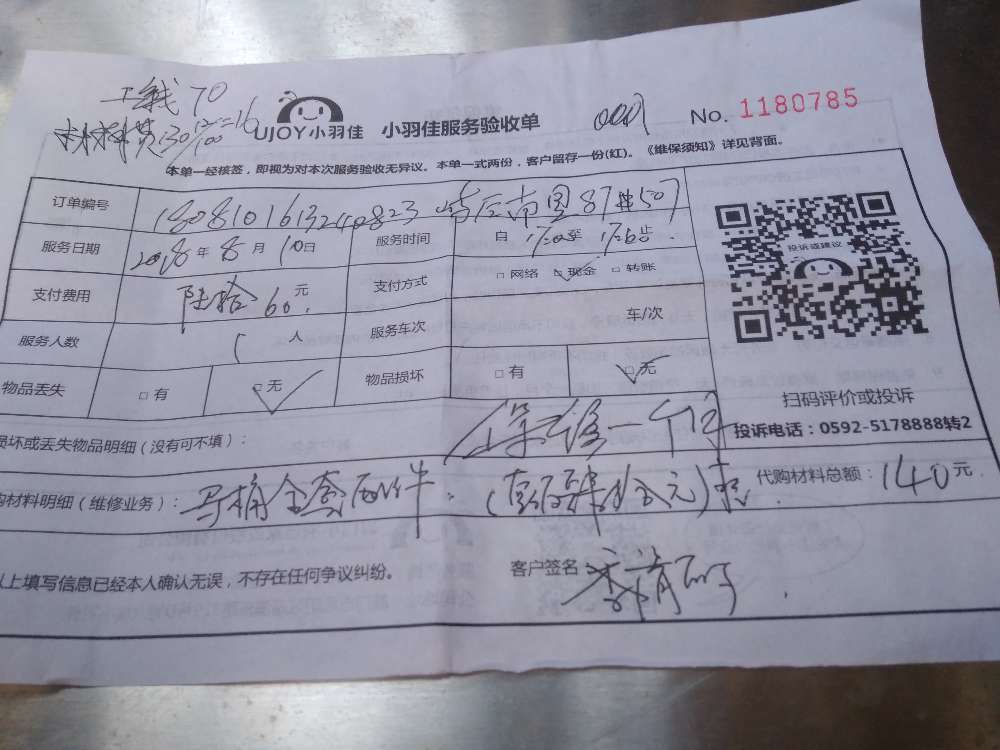 工钱 70
材料费
UJOY小羽佳 小羽佳服务验收单 No. 1180785
本单一经核签，即视为对本次服务验收无异议。本单一式两份，客户留存一份(红)。《维保须知》详见背面。
订单编号
服务日期 2018年8月10日 服务时间 自17:00至
支付费用 陆拾60元 支付方式 □网络 □现金 □转账
服务人数 1人 服务车次 车/次
物品丢失 □有 □无 物品损坏 □有 □无
投诉或建议
扫码评价或投诉
投诉电话：0592-5178888转2
损坏或丢失物品明细（没有可不填）： 保修一个
材料明细（维修业务）： 马桶全套配件 代购材料总额：140元
以上填写信息已经本人确认无误，不存在任何争议纠纷。 客户签名